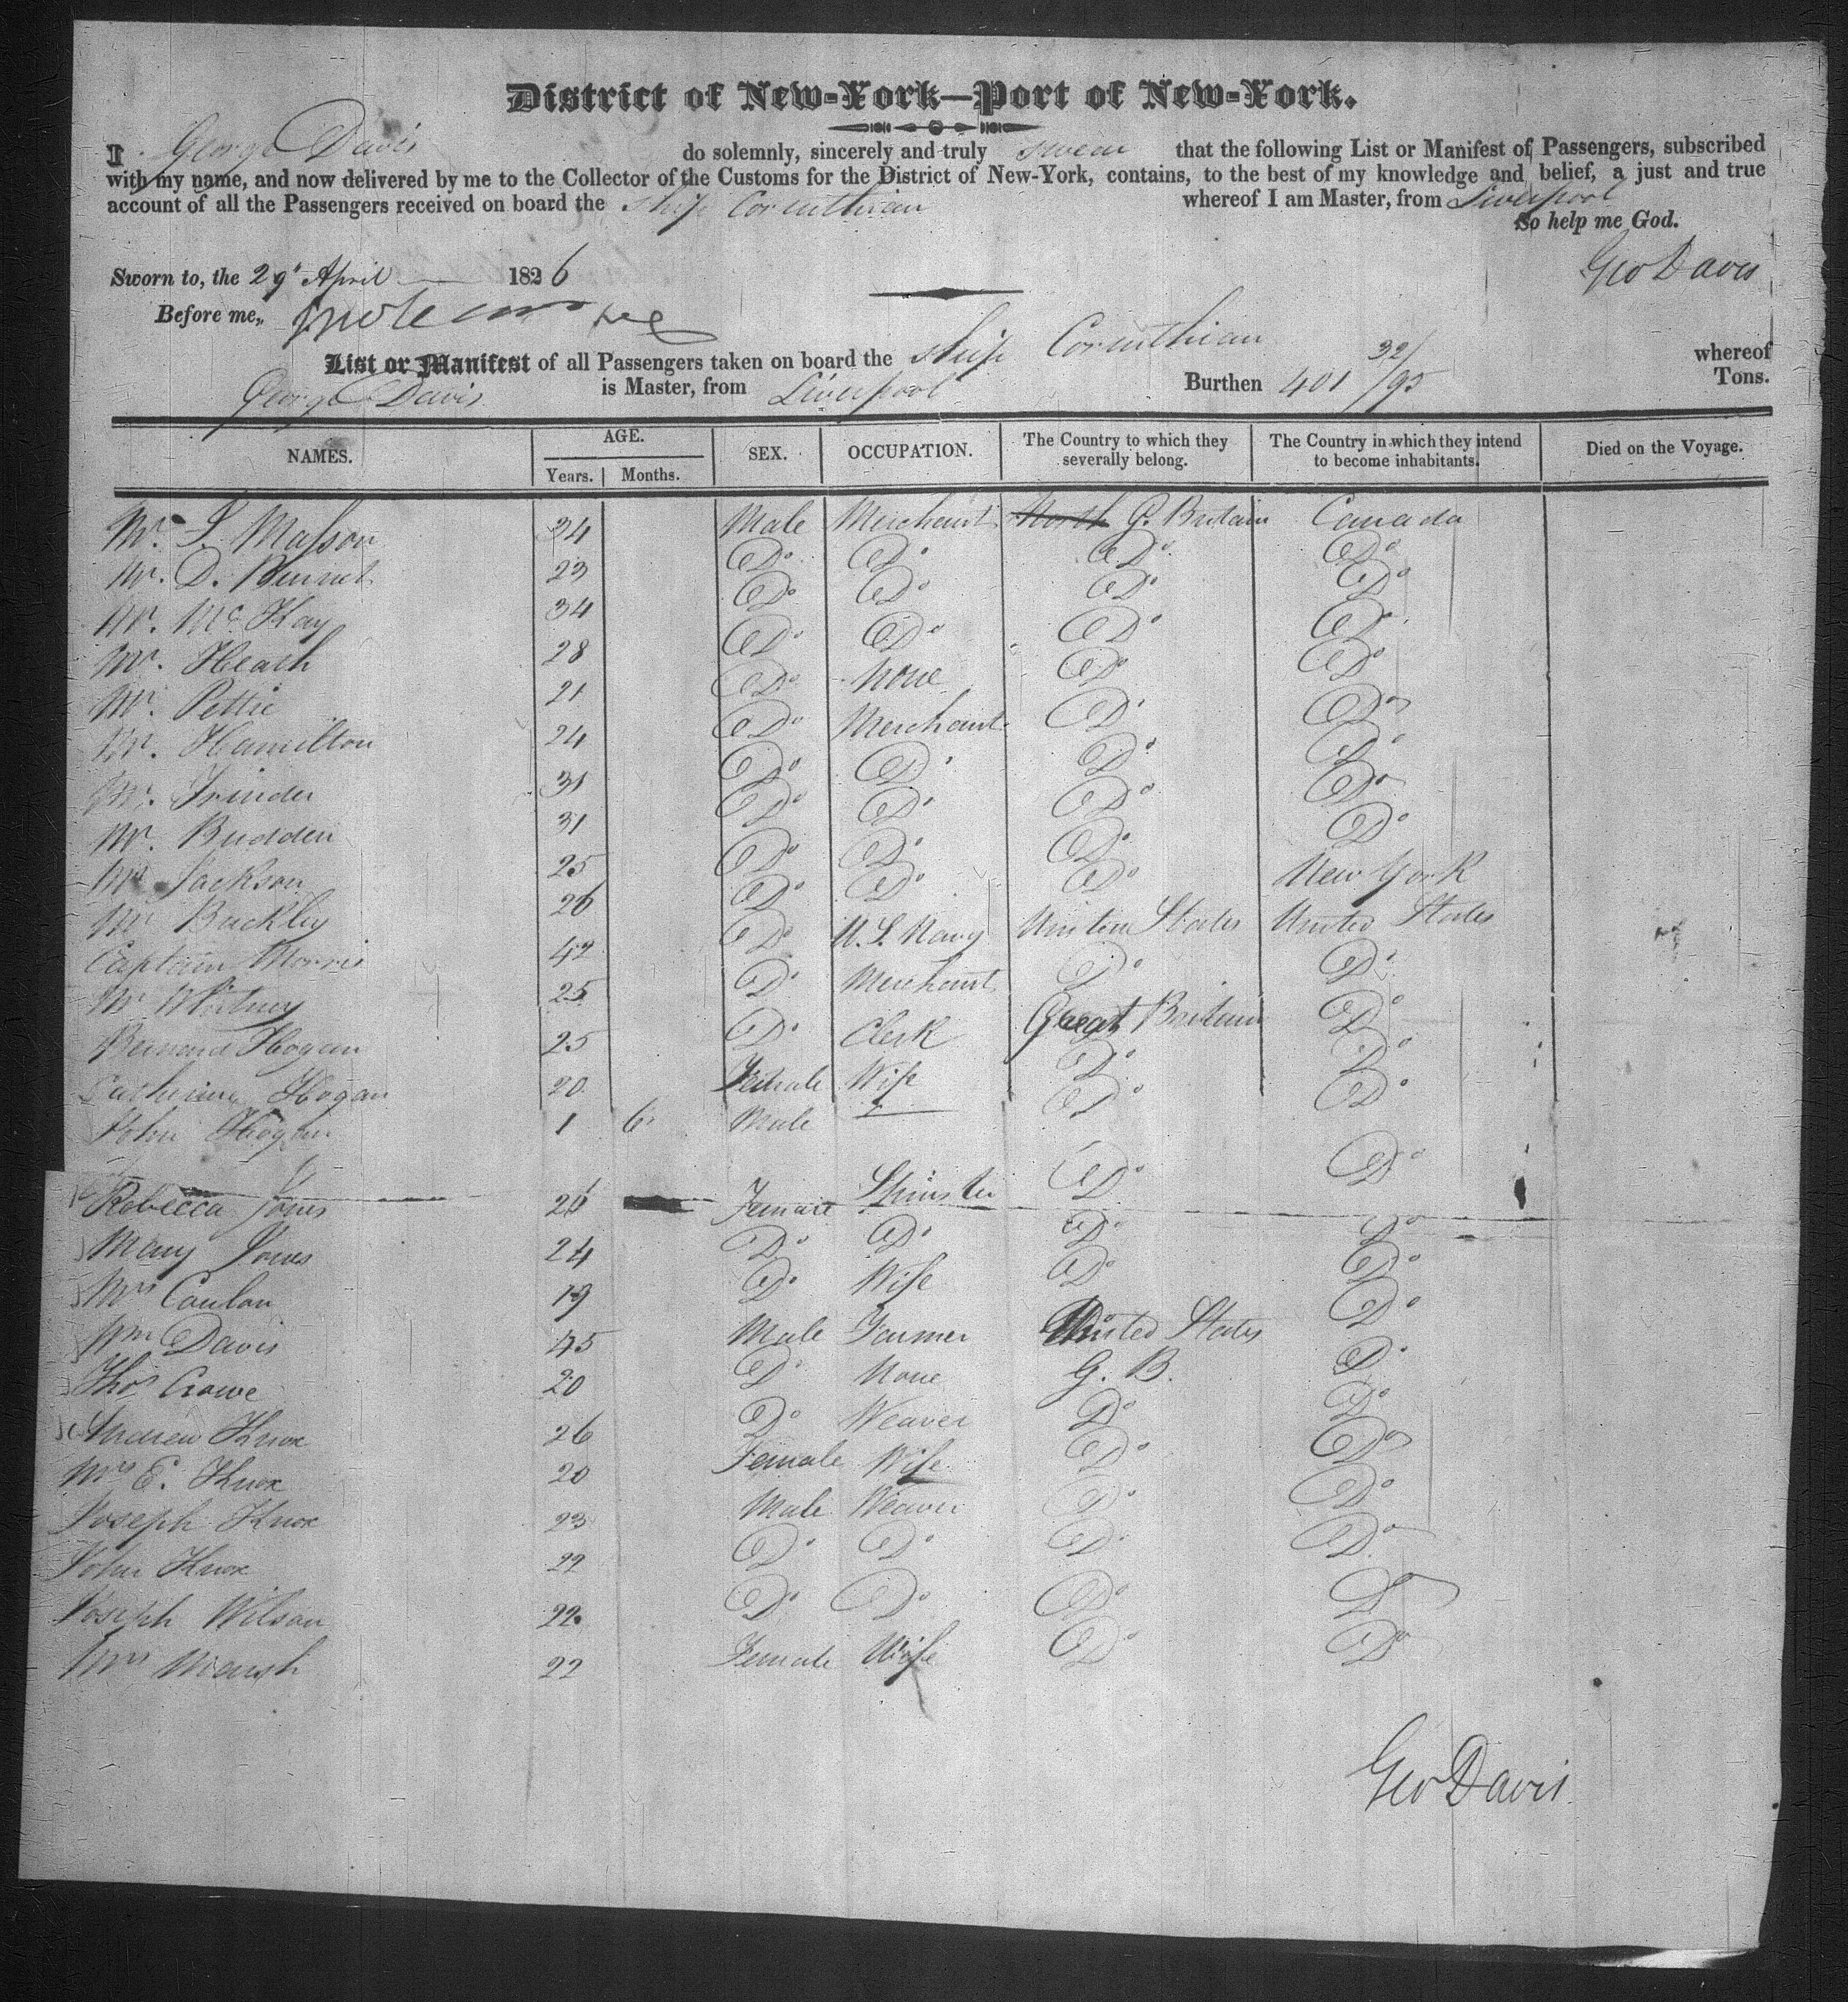 District of New-York—Port of New-York.
I George Davis do solemnly, sincerely and truly swear that the following List or Manifest of Passengers, subscribed
with my name, and now delivered by me to the Collector of the Customs for the District of New-York, contains, to the best of my knowledge and belief, a just and true
account of all the Passengers received on board the ship Corinthian whereof I am Master, from Liverpool
So help me God.
Sworn to, the 29 April 1826 Geo Davis
Before me,
List or Manifest of all Passengers taken on board the ship Corinthian whereof
George Davis is Master, from Liverpool Burthen 401 32/95 Tons.
NAMES. AGE. Years. Months. SEX. OCCUPATION. The Country to which they severally belong. The Country in which they intend to become inhabitants. Died on the Voyage.
Mr. Masson 24 Male Merchant North G. Britain Canada
Mr. D. 23 Do Do Do Do
Mr. McKay 34 Do Do Do Do
Mr. Heath 28 Do Do Do Do
Mr. Pettie 21 Do None Do Do
Mr. Hamilton 24 Do Merchant Do Do
Mr. Trinder 31 Do Do Do Do
Mr. Budden 31 Do Do Do Do
Mr Jackson 25 Do Do Do Do
Mr Buckley 26 Do Do Do New York
Captain Morris 42 Do U.S. Navy United States United States
Mr Whitney 25 Do Merchant Do Do
Bernard Hogan 25 Do Clerk Great Britain Do
Catherine Hogan 20 Female Wife Do Do
John Hogan 1 6 Male Do Do
Rebecca Jones 26 Female Spinster Do Do
Mary Jones 24 Do Do Do Do
Mrs Conlan 19 Do Wife Do Do
Wm Davis 45 Male Farmer United States Do
Thos Crowe 20 Do None G. B. Do
Andrew Knox 26 Do Weaver Do Do
Mrs E. Knox 20 Female Wife Do Do
Joseph Knox 23 Male Weaver Do Do
John Knox 22 Do Do Do Do
Joseph Wilson 22 Do Do Do Do
Mrs Marsh 22 Female Wife Do Do
Geo Davis